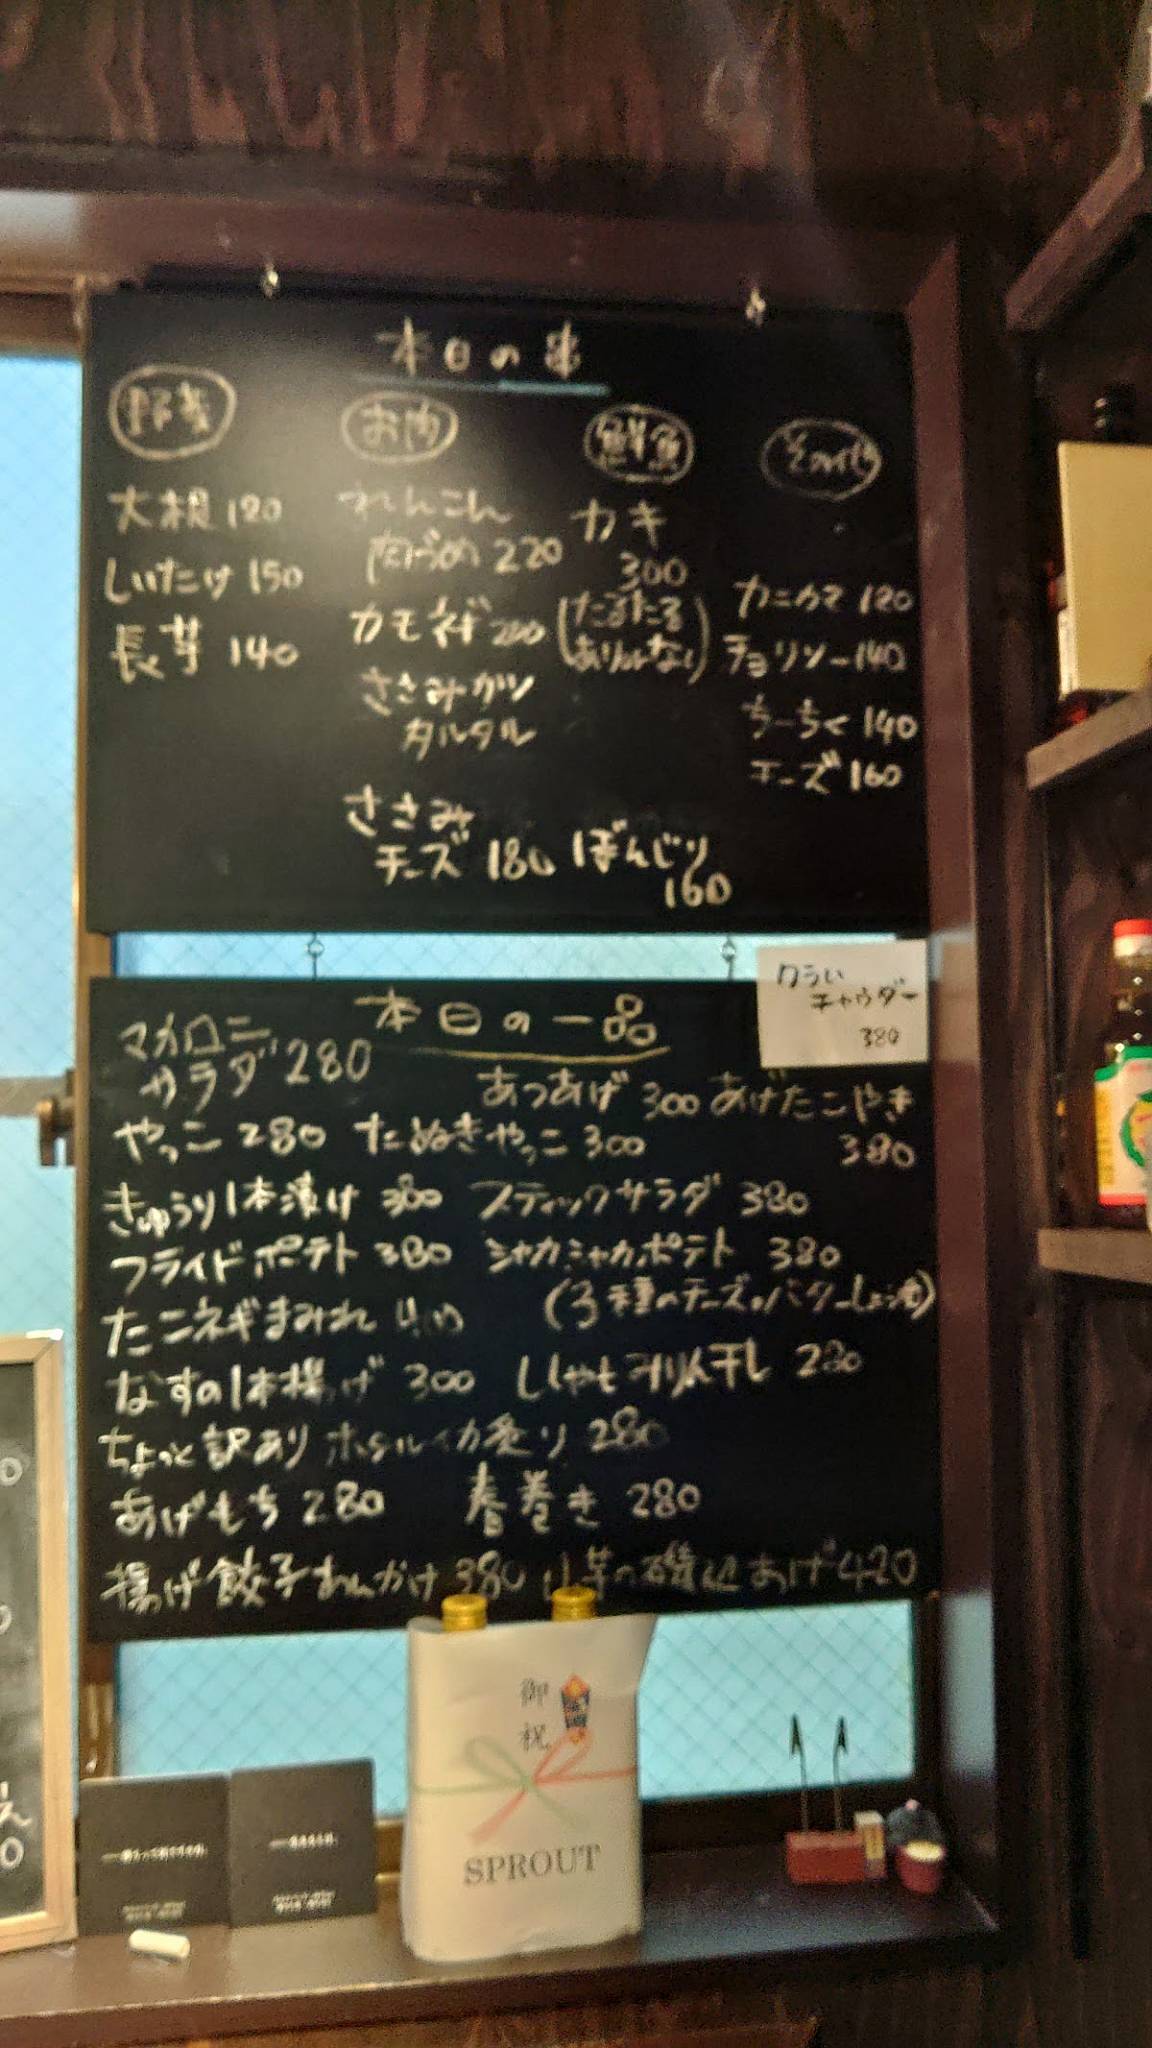 本日の串
野菜
大根 120
しいたけ 150
長芋 140
お肉
れんこん
肉づめ 220
カモネギ 200
ささみカツ
タルタル
ささみ
チーズ 180
ぼんじり
160
鮮魚
カキ
300
(たるたる
ありorなし)
その他
カニカマ 120
チョリソー 140
ちーちく 140
チーズ 160
本日の一品
クラム
チャウダー
380
マカロニ
サラダ 280
あつあげ 300 あげたこやき
380
やっこ 280 たぬきやっこ 300
きゅうり1本漬け 380 スティックサラダ 380
フライドポテト 380 シャカシャカポテト 380
(3種のチーズorバターしょうゆ)
たこネギまみれ
なすの1本揚げ 300 ししゃもみりん干し 280
ちょっと訳ありホタルイカ炙り 280
あげもち 280 春巻き 280
揚げ餃子あんかけ 380 小芋の磯辺あげ 420
御祝
SPROUT